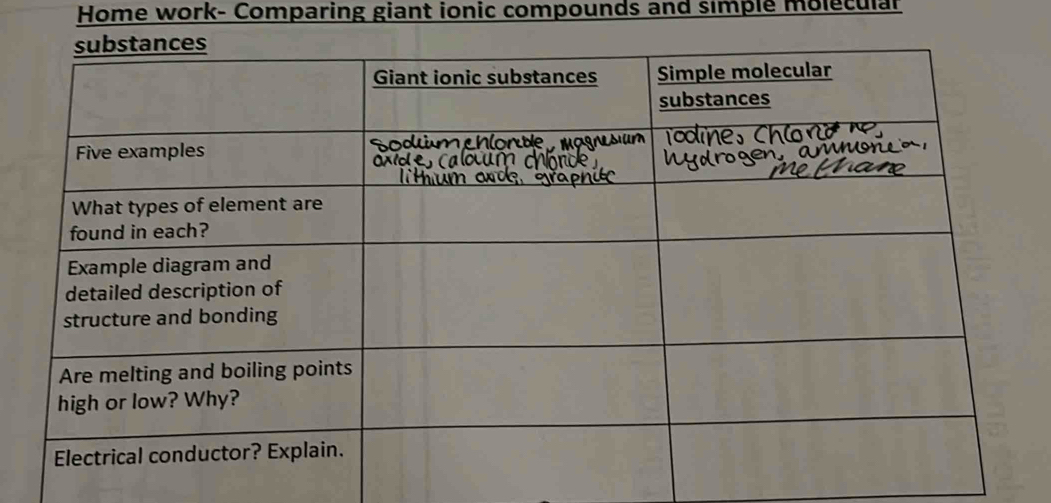 Home work- Comparing giant ionic compounds and simple molecular
substances
Giant ionic substances
Simple molecular
substances
Five examples
sodium chloride, magnesium
oxide, calcium chloride,
lithium oxide, graphite
Iodine, chlorine,
hydrogen, ammonia,
methane
What types of element are
found in each?
Example diagram and
detailed description of
structure and bonding
Are melting and boiling points
high or low? Why?
Electrical conductor? Explain.